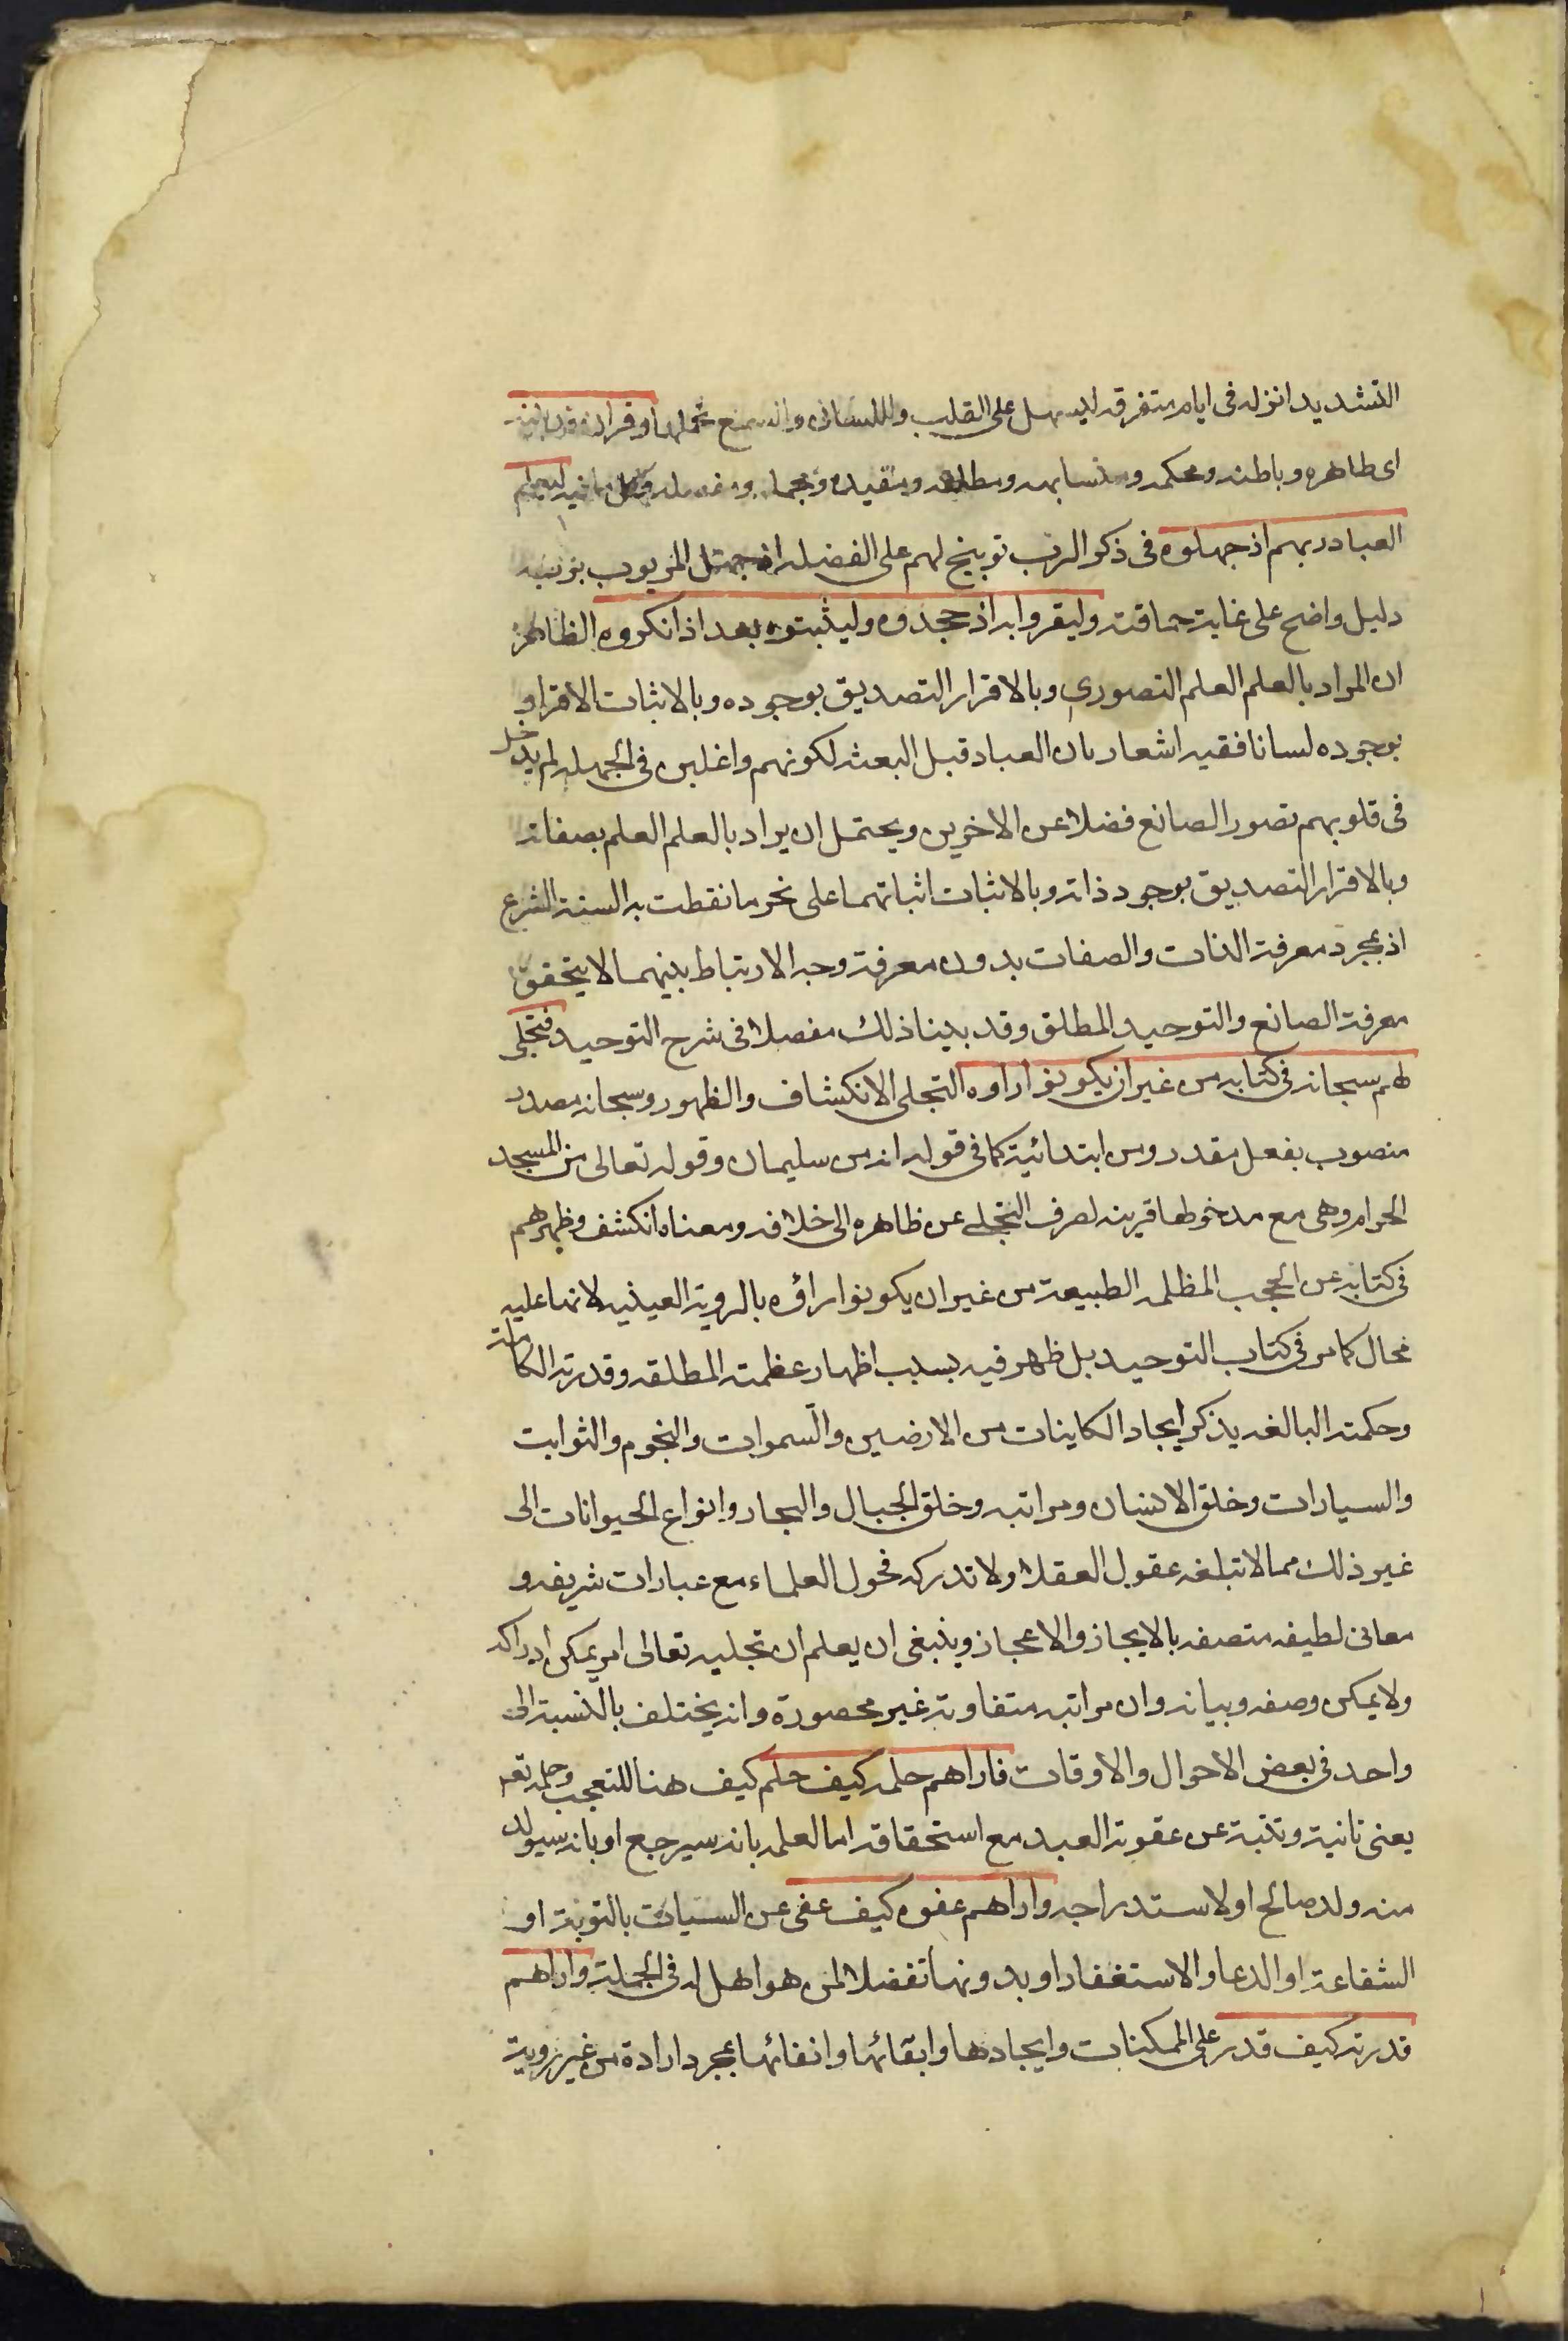 التشديد انزله فى ايام متفرقه ليسهل على القلب واللسان والسمع تحملها او قران قد بينه
اى ظاهره وباطنه ومحكمه ومتشابهه ومطلقه ومقيده ومجمله ومفصله وكل ما فيه ليعلم
العباد ربهم اذ جهلوه فى ذكر الرب توبيخ لهم على الفضله اذ جهل المربوب بربه
دليل واضح على غاية حماقته وليقروا به اذ جحدوه وليثبتوه بعد اذ انكروه الظاهر
ان المراد بالعلم العلم التصورى وبالاقرار التصديق بوجوده وبالاثبات الاقرار و
بوجوده لسانا ففيه اشعار بان العباد قبل البعثه لكونهم واغلين فى الجهله لم يدخل
فى قلوبهم تصور الصانع فضلا عن الاخرين ويحتمل ان يراد بالعلم العلم بصفاته
وبالاقرار التصديق بوجود ذاته وبالاثبات اثباتهما على نحو ما نقطت به السنة الشرع
اذ بمجرد معرفة الذات والصفات بدون معرفة وجه الارتباط بينهما لا يتحقق
معرفة الصانع والتوحيد المطلق وقد بينا ذلك مفصلا فى شرح التوحيد فتجلى
لهم سبحانه فى كتابه من غير ان يكونوا راوه التجلى الانكشاف والظهور وسبحانه مصدر
منصوب بفعل مقدر ومن ابتدائية كما فى قوله انه من سليمان وقوله تعالى من المسجد
الحرام وهى مع مدخولها قرينه لصرف التجلى عن ظاهره الى خلافه ومعناه انكشف وظهر لهم
فى كتابه عن الحجب المظلمه الطبيعة من غير ان يكونوا راؤه بالروية العينيه لانها عليه
محال كما مر فى كتاب التوحيد بل ظهر فيه بسبب اظهار عظمته المطلقه وقدرته الكاملة
وحكمته البالغه يذكر ايجاد الكاينات من الارضين والسموات والنجوم والثوابت
والسيارات وخلق الانسان ومراتبه وخلق الجبال والبحار وانواع الحيوانات الى
غير ذلك مما لا تبلغه عقول العقلا ولا تدركه فحول العلماء مع عبارات شريفه و
معانى لطيفه متصفه بالايجاز والاعجاز وينبغى ان يعلم ان تجليه تعالى امر يمكن ادراكه
ولا يمكن وصفه وبيانه وان مراتبه متفاوته غير محصورة وانه يختلف بالنسبة الى
واحد فى بعض الاحوال والاوقات فاراهم حلمه كيف حلم كيف هنا للتعجب وحلمه تعم
يعنى تانية وتثبته عن عقوبة العبد مع استحقاقه اما لعلمه بانه سيرجع او بانه سيولد
منه ولد صالح او لاستدراجه واراهم عفوه كيف عفى عن السيات بالتوبة او
الشفاعة او الدعا والاستغفار او بدونها تفضلا لمن هو اهل له فى الجملة واراهم
قدرته كيف قدر على الممكنات وايجادها وابقائها وانفائها بمجرد ارادة من غير روية